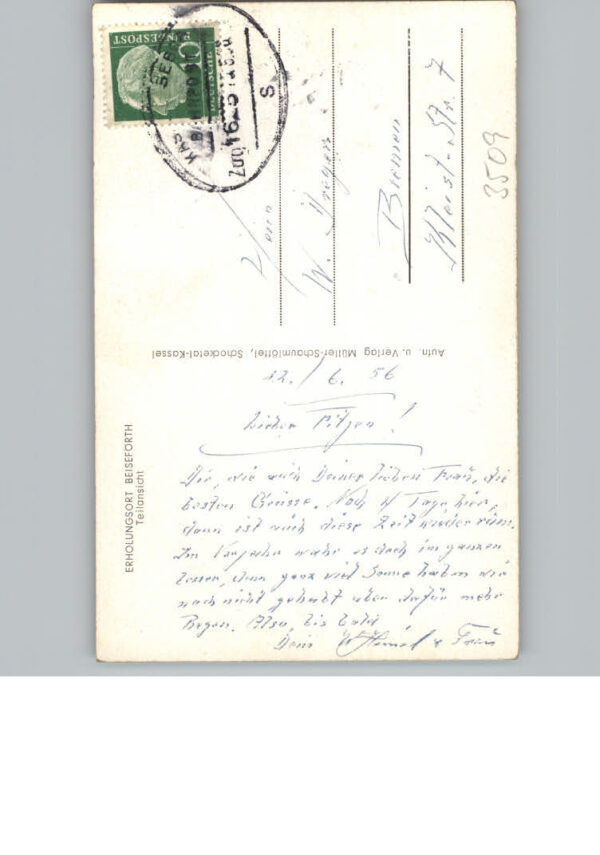 BUNDESPOST
Zug 1625
Herrn
W.
Bremen
Kleist-Str. 7
3509
Aufn. u. Verlag Müller-Schaumlöffel, Schocketal-Kassel
ERHOLUNGSORT BEISEFÖRTH
Teilansicht
12./6. 56
Lieber !
Dir, wie auch Deiner lieben Frau, die
besten Grüsse. Noch Tage hier,
dann ist auch diese Zeit wieder rum.
Im Vorjahr wahr es doch im ganzen
besser, denn ganz viel Sonne haben wir
noch nicht gehabt aber dafür mehr
Regen. Also, bis bald
Dein & Frau